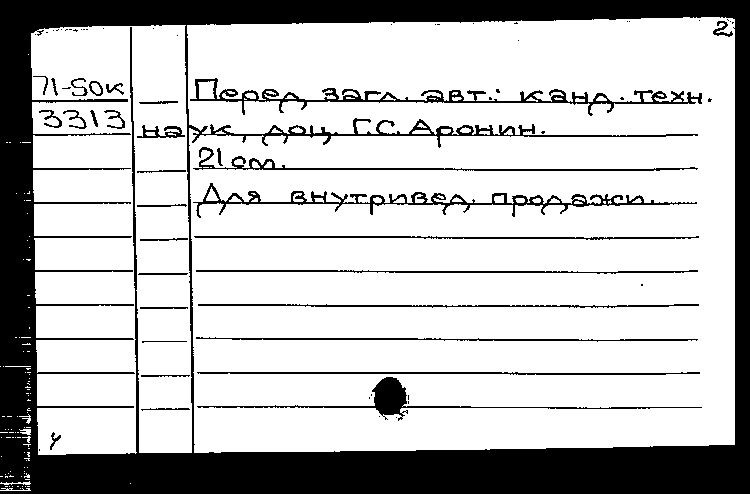 2
71-50к Перед загл. авт.: канд. техн.
3313 наук, доц. Г.С. Аронин.
21 см.
Для внутривед. продажи.